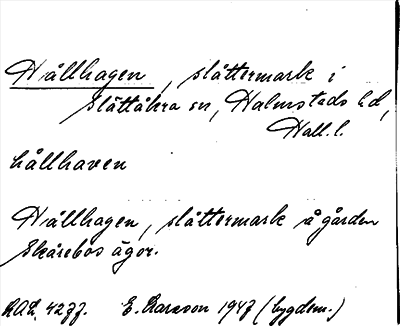 Hållhagen, slåttermark i
Slättåkra sn, Halmstads hd,
Hall. l.
hållhaven
Hållhagen, slåttermark å gården
Skårebos ägor.
OAL. 4277. E. Larsson 1947 (bygdem.)